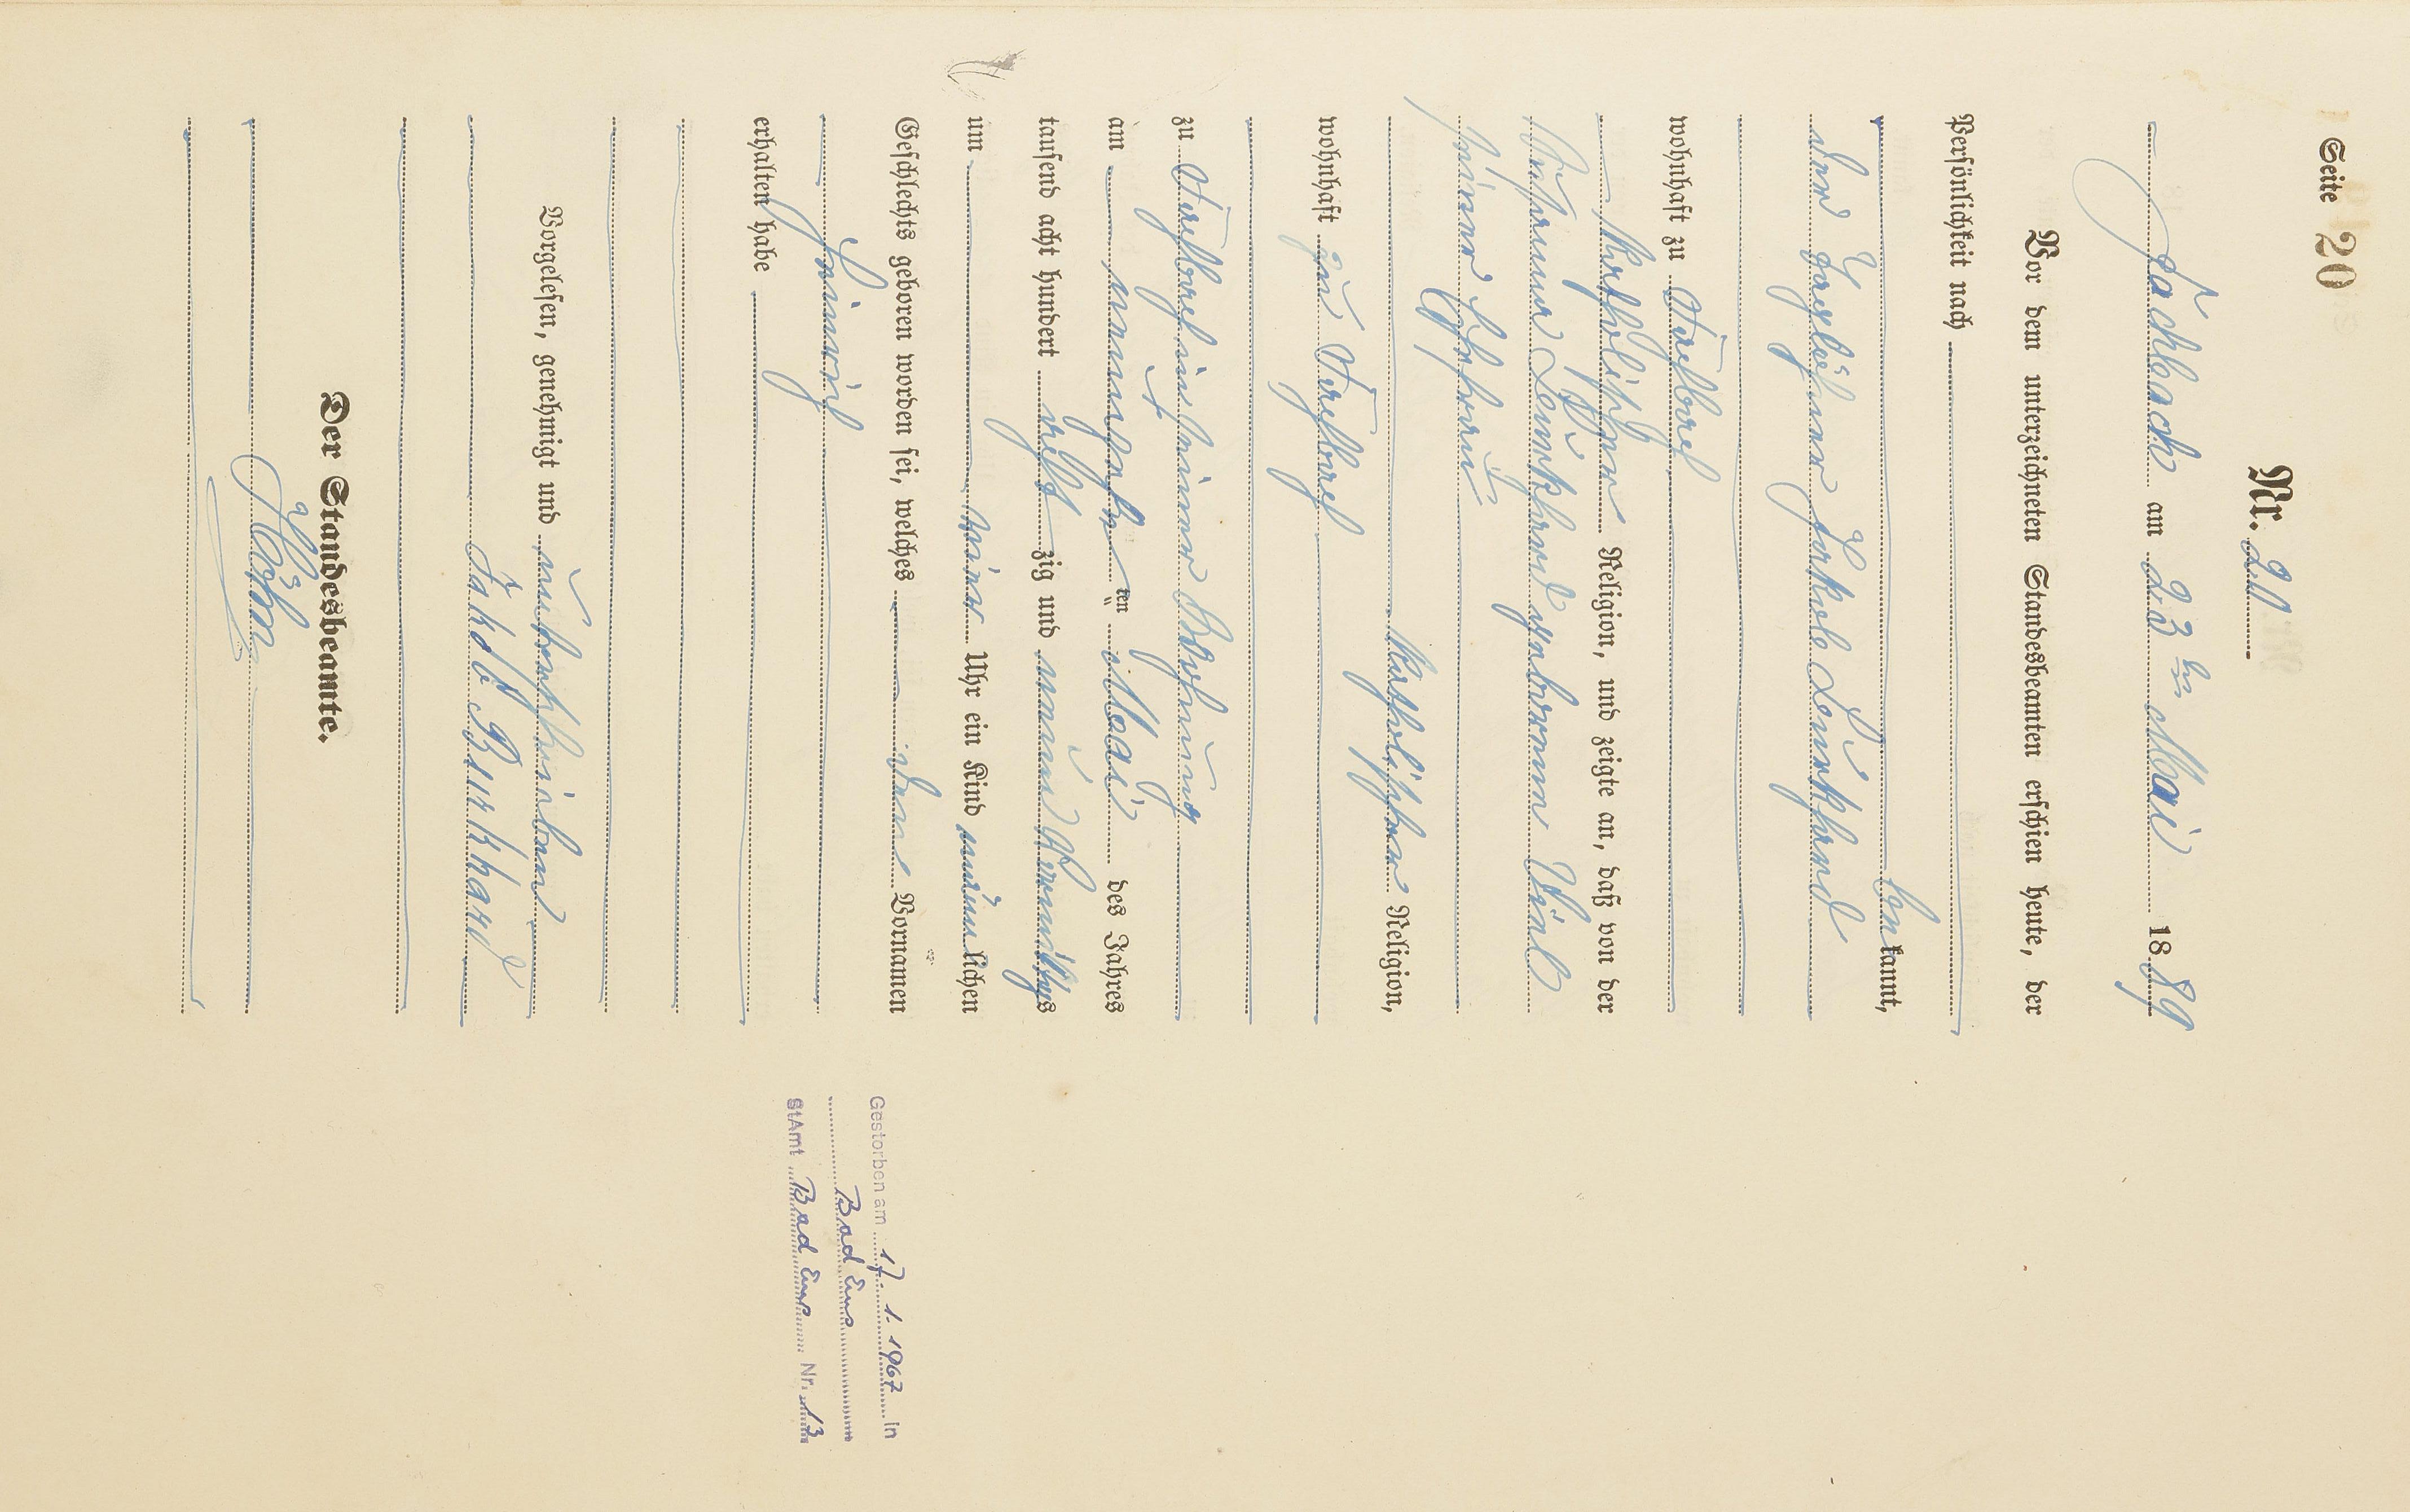 Seite 20
Nr. 20
Fachbach am 23ten Mai 1889
Vor dem unterzeichneten Standesbeamten erschien heute, der
Persönlichkeit nach
bekannt,
der Taglöhner Jakob Burkhard
wohnhaft zu
katholischer Religion, und zeigte an, daß von der
geborenen
seiner Ehefrau
katholischer Religion,
wohnhaft
zu in seiner Wohnung
am neunzehnten ten Mai des Jahres
tausend acht hundert acht zig und neun Vormittags
um Uhr ein Kind männlichen
Geschlechts geboren worden sei, welches den Vornamen
Heinrich
erhalten habe
Vorgelesen, genehmigt und unterschrieben
Jakob Burkhard
Der Standesbeamte.
Gestorben am 17. 1. 1967 in
Bad Ems
StAmt Bad Ems Nr. 13